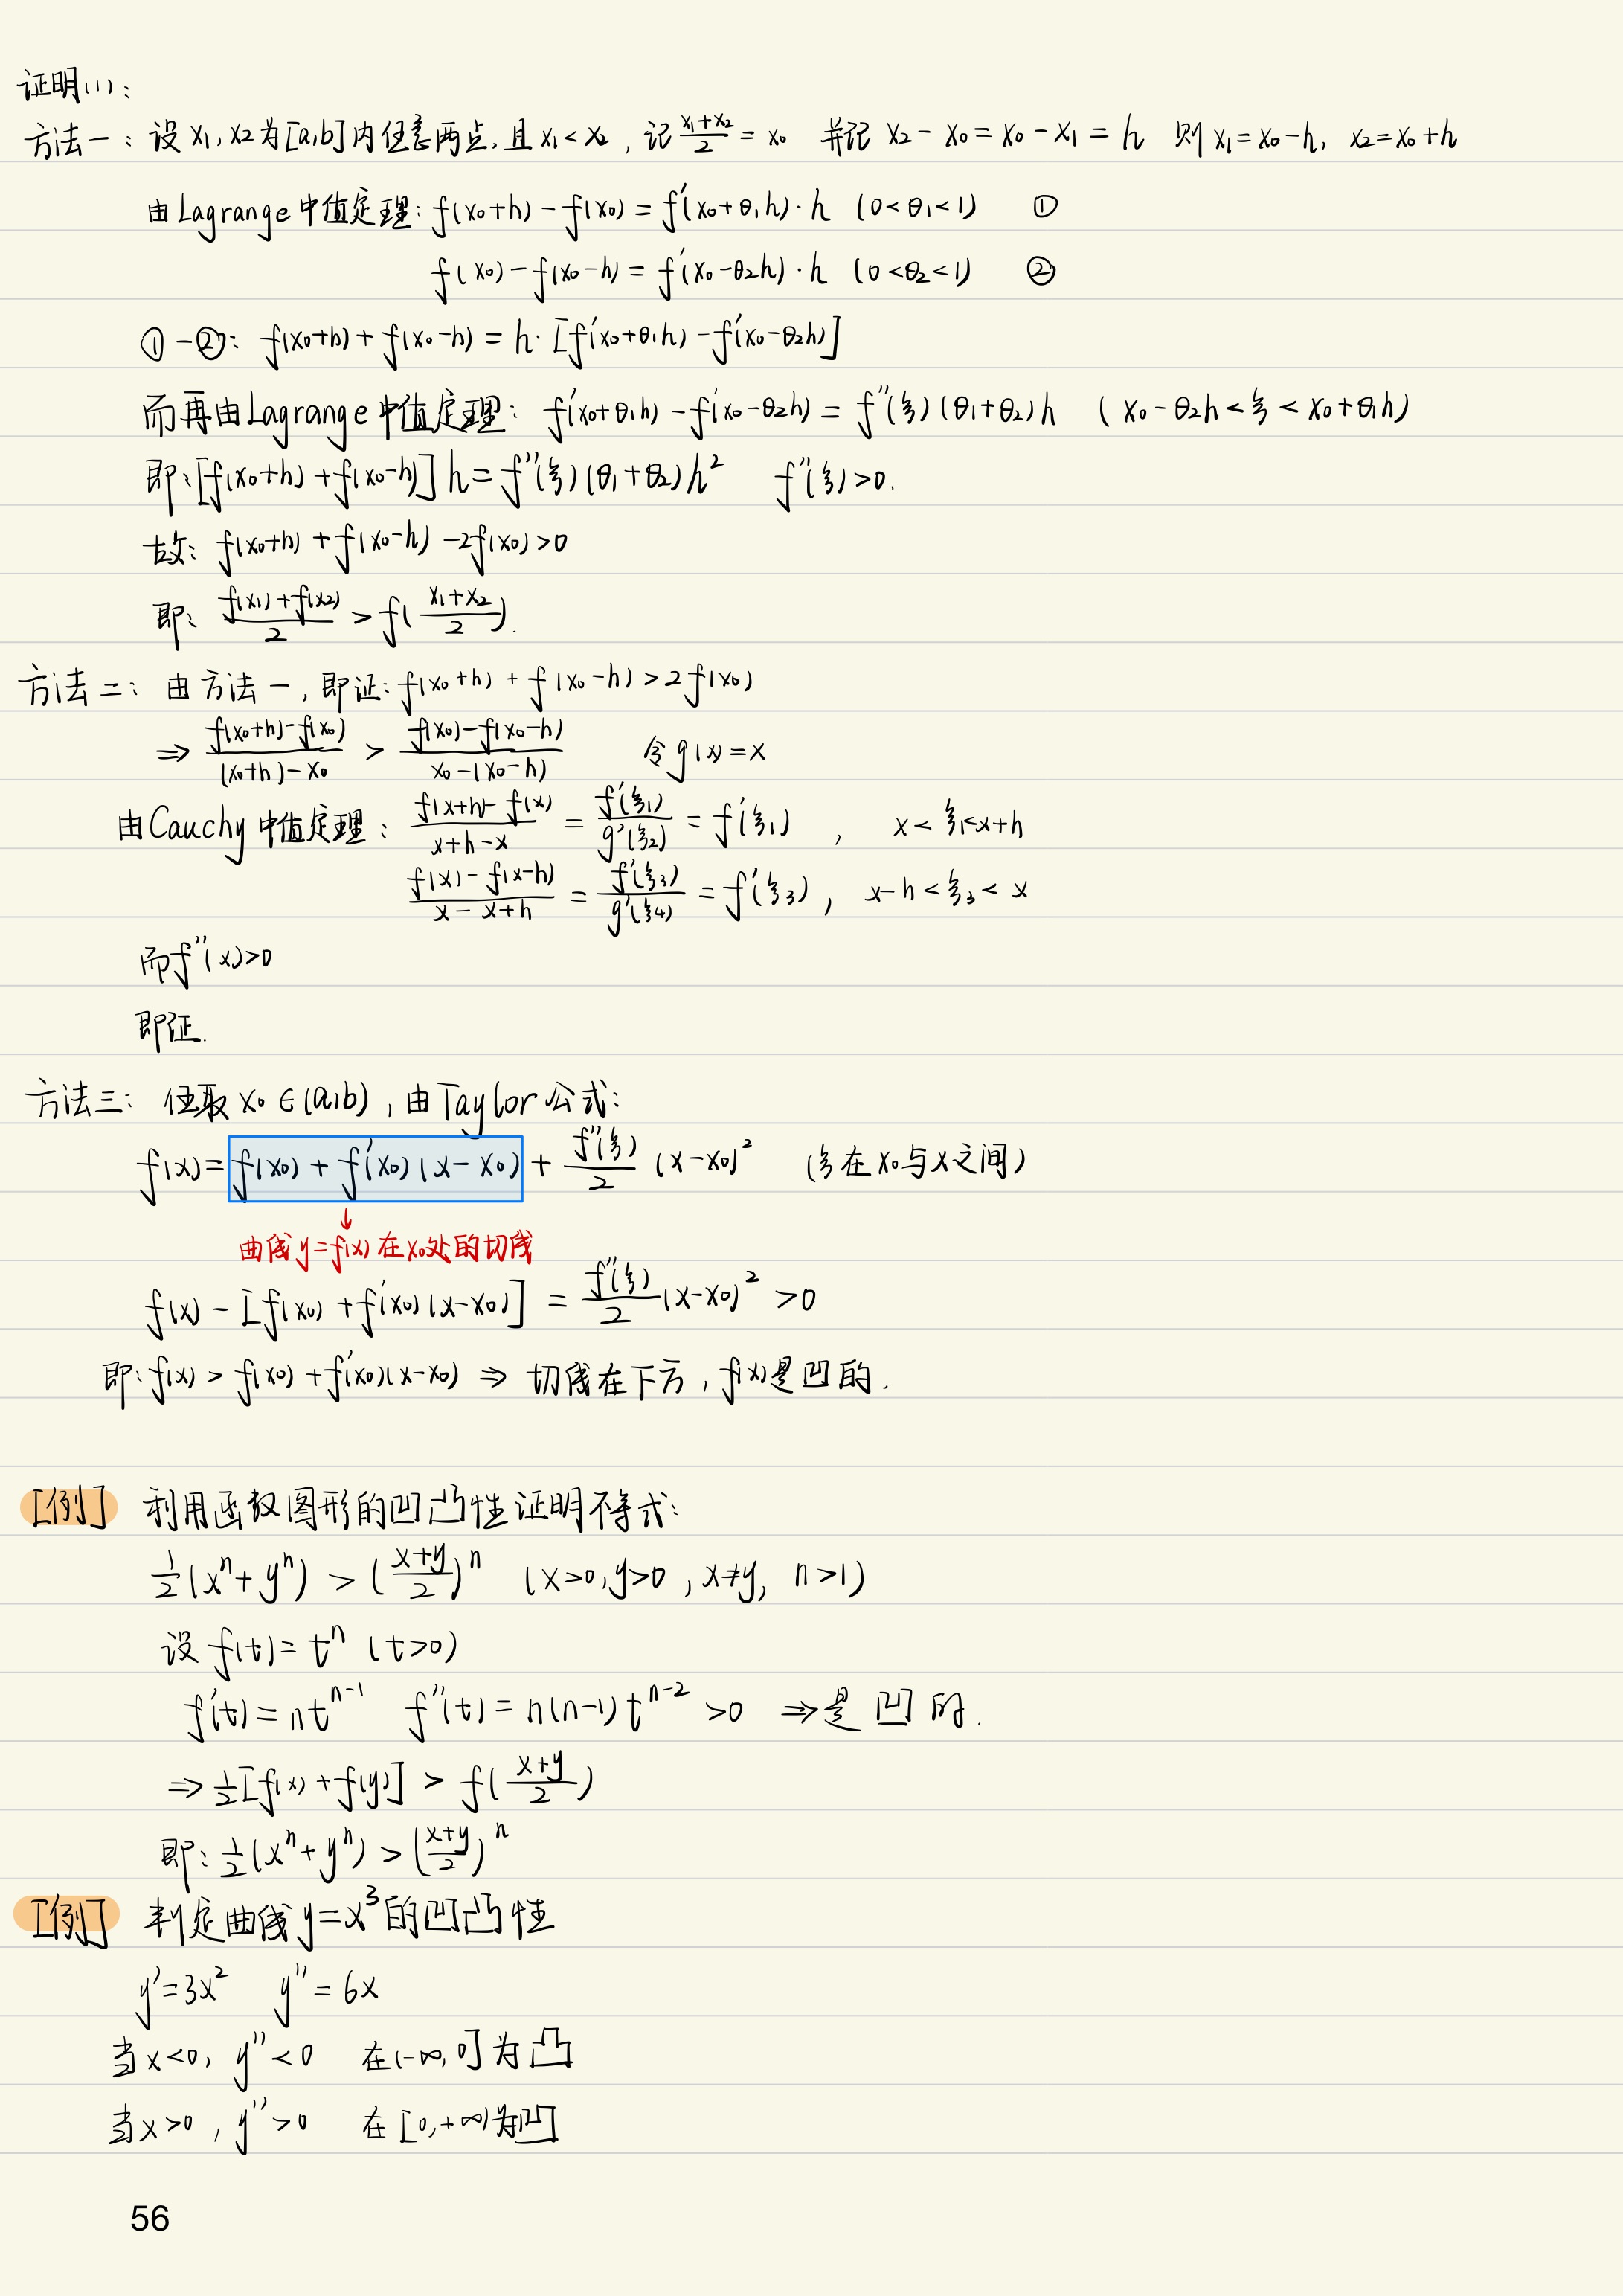 证明(1):
方法一: 设 x₁, x₂ 为[a,b]内任意两点, 且 x₁ < x₂, 记 (x₁+x₂)/2 = x₀ 并记 x₂ - x₀ = x₀ - x₁ = h 则 x₁ = x₀ - h, x₂ = x₀ + h
由Lagrange中值定理: f(x₀+h) - f(x₀) = f'(x₀+θ₁h)·h (0<θ₁<1) ①
f(x₀) - f(x₀-h) = f'(x₀-θ₂h)·h (0<θ₂<1) ②
① - ②: f(x₀+h) + f(x₀-h) = h·[f'(x₀+θ₁h) - f'(x₀-θ₂h)]
而再由Lagrange中值定理: f'(x₀+θ₁h) - f'(x₀-θ₂h) = f''(ξ)(θ₁+θ₂)h (x₀-θ₂h < ξ < x₀+θ₁h)
即: [f(x₀+h) + f(x₀-h)]h = f''(ξ)(θ₁+θ₂)h² f''(ξ)>0.
故: f(x₀+h) + f(x₀-h) - 2f(x₀) > 0
即: (f(x₁)+f(x₂))/2 > f((x₁+x₂)/2).
方法二: 由方法一, 即证: f(x₀+h) + f(x₀-h) > 2f(x₀)
⇒ (f(x₀+h)-f(x₀))/((x₀+h)-x₀) > (f(x₀)-f(x₀-h))/(x₀-(x₀-h)) 令g(x)=x
由Cauchy中值定理: (f(x+h)-f(x))/(x+h-x) = f'(ξ₁)/g'(ξ₂) = f'(ξ₁), x<ξ₁<x+h
(f(x)-f(x-h))/(x-x+h) = f'(ξ₃)/g'(ξ₄) = f'(ξ₃), x-h<ξ₃<x
而f''(x)>0
即证.
方法三: 任取 x₀∈(a,b), 由Taylor公式:
f(x) = f(x₀) + f'(x₀)(x-x₀) + f''(ξ)/2 (x-x₀)² (ξ在x₀与x之间)
↓
曲线y=f(x)在x₀处的切线
f(x) - [f(x₀) + f'(x₀)(x-x₀)] = f''(ξ)/2 (x-x₀)² > 0
即: f(x) > f(x₀) + f'(x₀)(x-x₀) ⇒ 切线在下方, f(x)是凹的.
[例] 利用函数图形的凹凸性证明不等式:
1/2(xⁿ+yⁿ) > ((x+y)/2)ⁿ (x>0,y>0, x≠y, n>1)
设 f(t) = tⁿ (t>0)
f'(t) = ntⁿ⁻¹ f''(t) = n(n-1)tⁿ⁻² > 0 ⇒ 是凹的.
⇒ 1/2[f(x)+f(y)] > f((x+y)/2)
即: 1/2(xⁿ+yⁿ) > ((x+y)/2)ⁿ
[例] 判定曲线y=x³的凹凸性
y'=3x² y''=6x
当x<0, y''<0 在(-∞,0]为凸
当x>0, y''>0 在[0,+∞)为凹
56